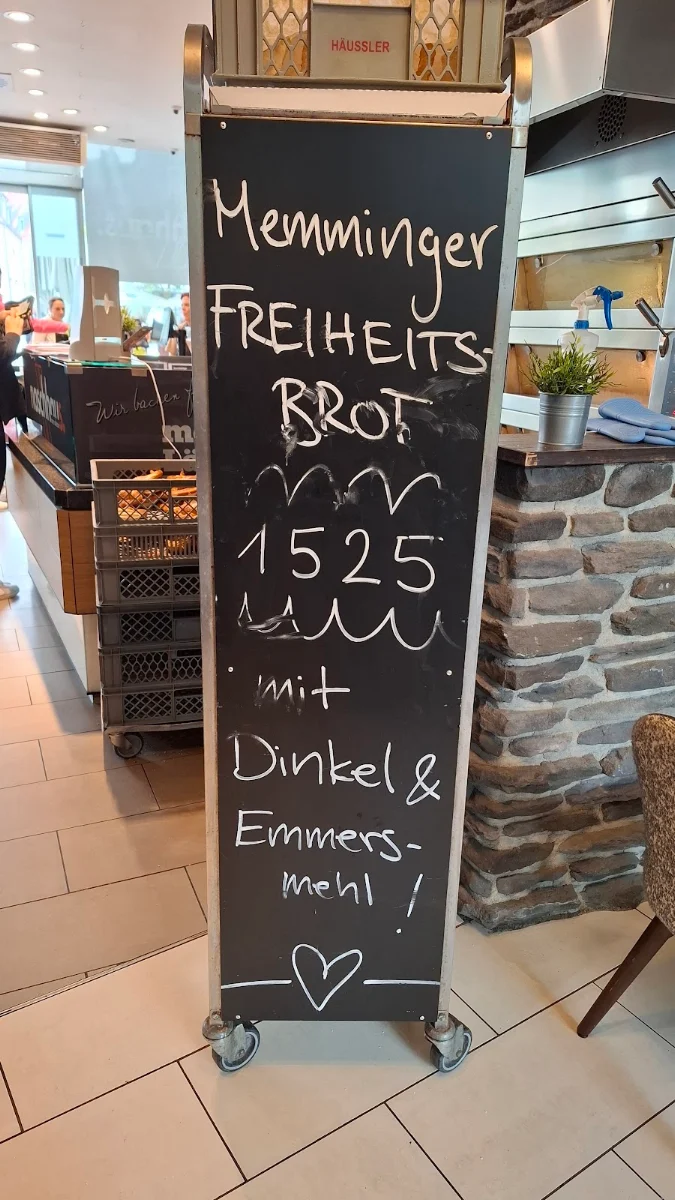 HÄUSSLER
Memminger
FREIHEITS-
BROT
1525
mit
Dinkel &
Emmers-
mehl !
Wir backen